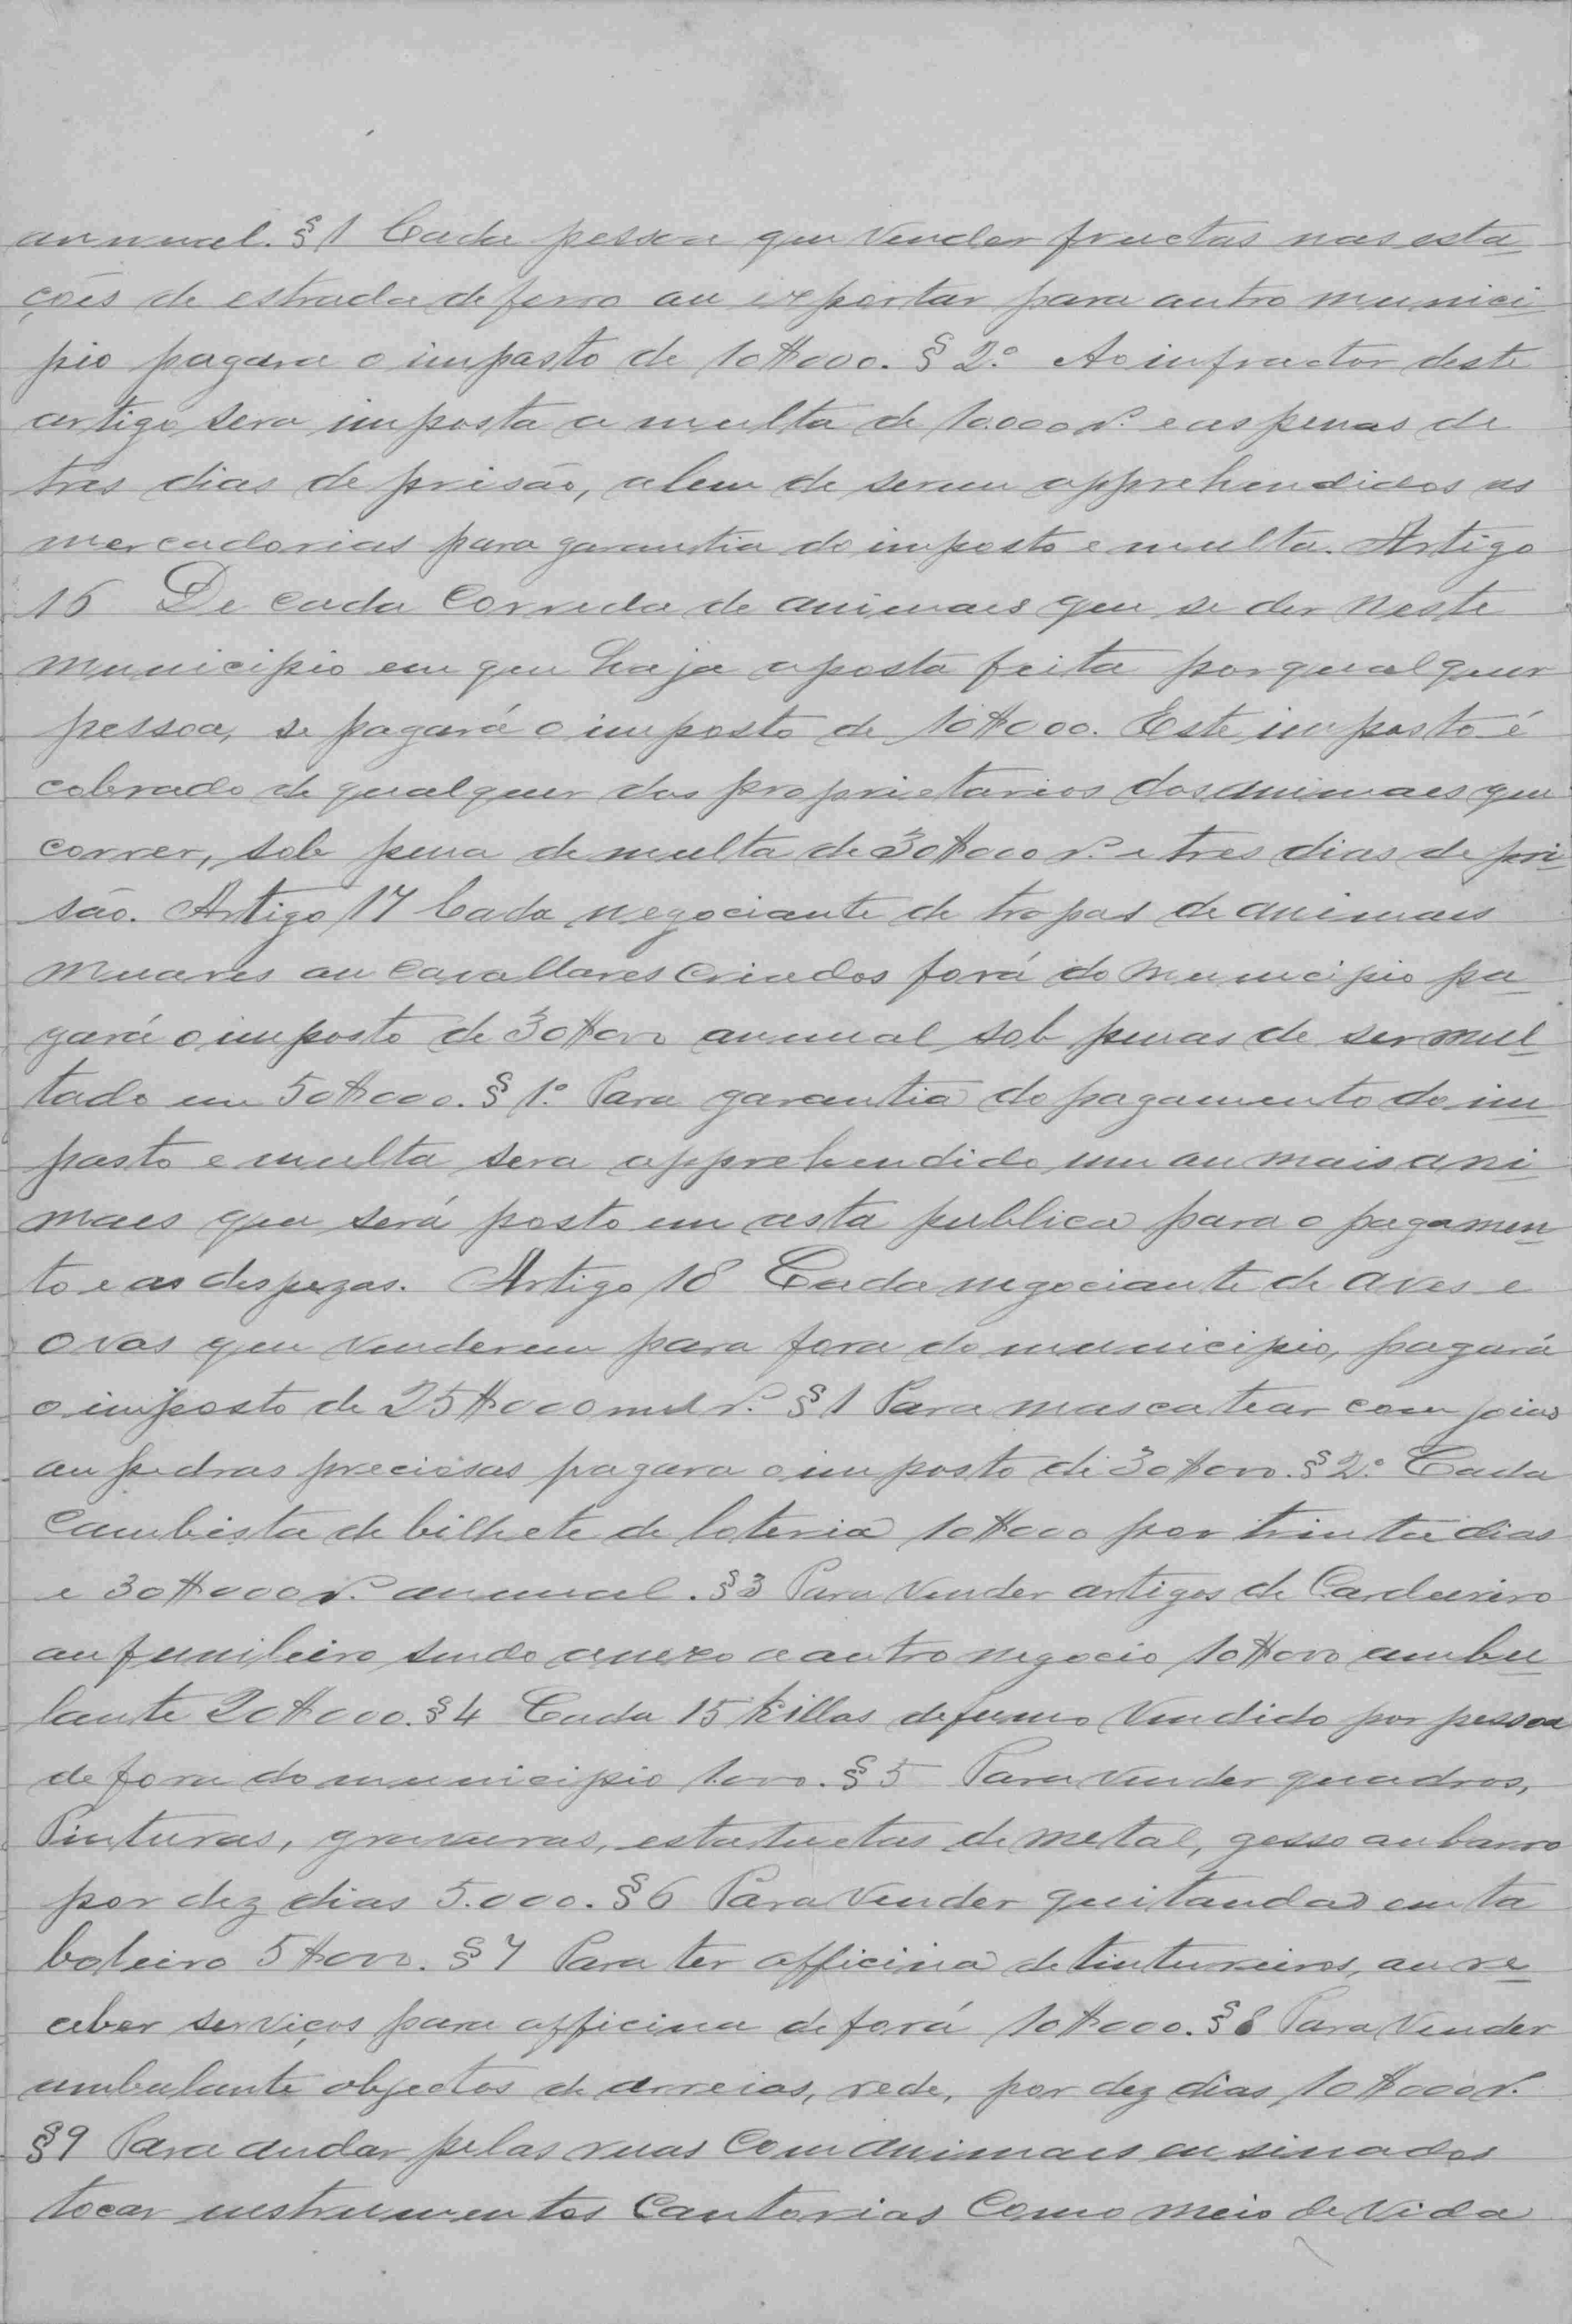 annual. § 1 Cada pessoa que vender fructas nas esta
ções de estrada de ferro ou exportar para outro munici
pio pagara o imposto de 10$000. § 2.º Ao infractor deste
artigo sera imposta a multa de 10.000 r. e as penas de
tres dias de prisão, alem de serem apprehendidos as
mercadorias para garantia do imposto e multa. Artigo
16 De cada corrida de animaes que se der neste
municipio em que haja aposta feita por qualquer
pessoa, se pagará o imposto de 10$000. Este imposto é
cobrado de qualquer dos proprietarios dos animaes que
correr, sob pena de multa de 30$000 r. e tres dias de pri
são. Artigo 17 Cada negociante de tropas de animaes
muares ou cavallares criados forá do municipio pa
gará o imposto de 30$000 annual sob penas de ser mul
tado em 50$000. § 1.º Para garantia do pagamento do im
posto e multa sera apprehendido um ou mais ani
maes que será posto em asta publica para o pagamen
to e as despezas. Artigo 18 Cada negociante de aves e
ovos que venderem para fora do municipio, pagará
o imposto de 25$000 mil r. § 1 Para mascatear com joias
ou pedras preciosas pagara o imposto de 30$000. § 2.º Cada
cambista de bilhete de loteria 10$000 por trinta dias
e 30$000 r. annual. § 3 Para vender artigos de Cardeireiro
ou funileiro sendo anexo a outro negocio 10$000 ambu
lante 20$000. § 4 Cada 15 killos de fumo vendido por pessoa
de fora do municipio 1.000. § 5 Para vender quadros,
Pinturas, gravuras, estatuetas de metal, gesso ou barro
por dez dias 5.000. § 6 Para vender quitandas em ta
boleiro 5$000. § 7 Para ter officina de tintureiros, ou re
ceber serviços para officina de forá 10$000. § 8 Para vender
ambulante objectos de arreios, rede, por dez dias 10$000 r.
§ 9 Para andar pelas ruas com animaes ensinados
tocar instrumentos Cantorias como meio de vida